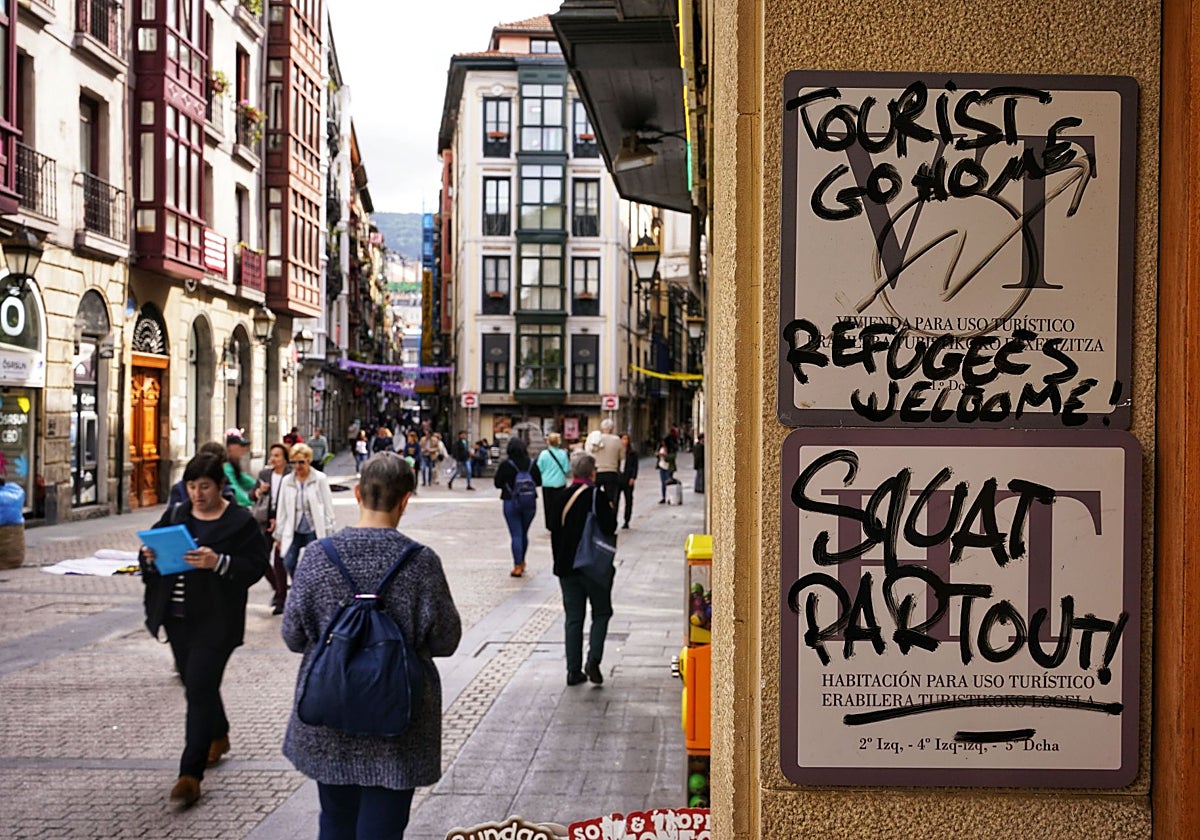 TOURIST
GO HOME
VT
VIVIENDA PARA USO TURÍSTICO
REFUGEES
WELCOME!
SQUAT
PARTOUT!
HT
HABITACIÓN PARA USO TURÍSTICO
ERABILERA TURISTIKOKO LOGELA
2º Izq, - 4º Izq-izq, - 5º Dcha